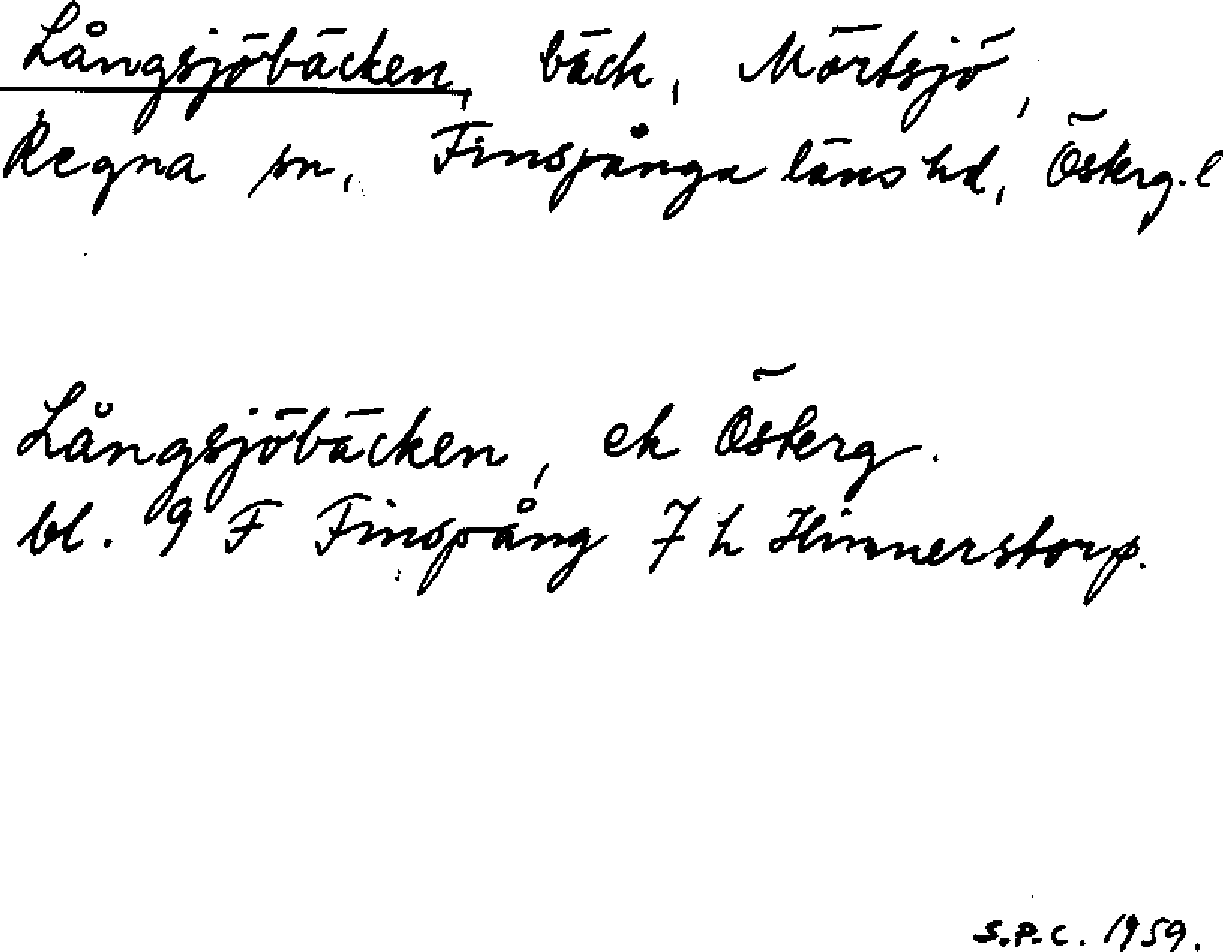 Långsjöbäcken, bäck, Mörtsjö,
Regna sn, Finspånga läns hd, Österg. l
Långsjöbäcken, ek Österg.
bl. 9 F Finspång 7 h Hinnerstorp.
S.P.C. 1959.